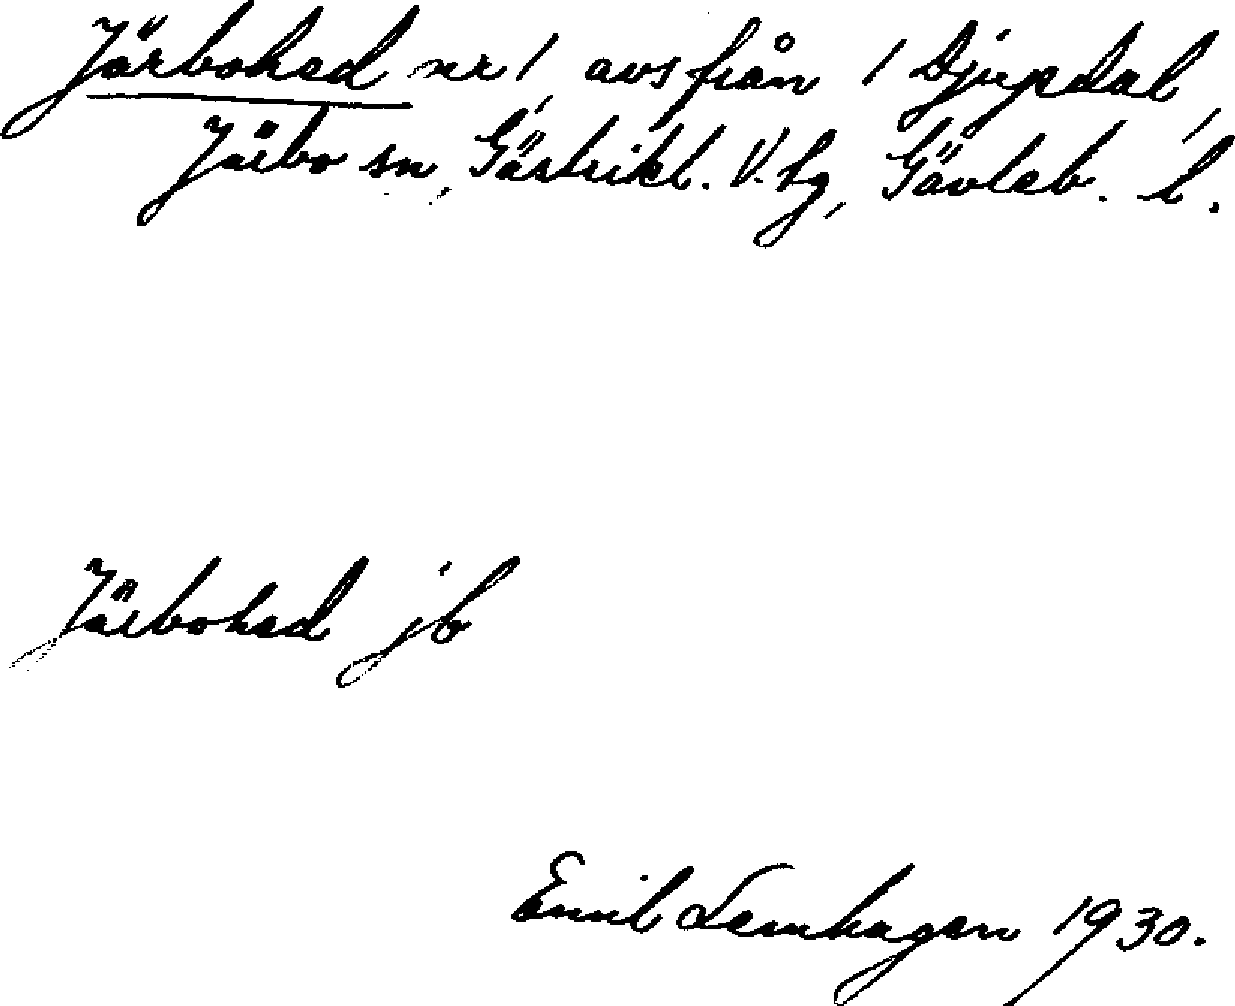 Järbohed nr 1, avs från 1 Djupdal,
Järbo sn, Gästrikl. V. tg, Gävleb. l.
Järbohed jb
Emil Lemhagen 1930.